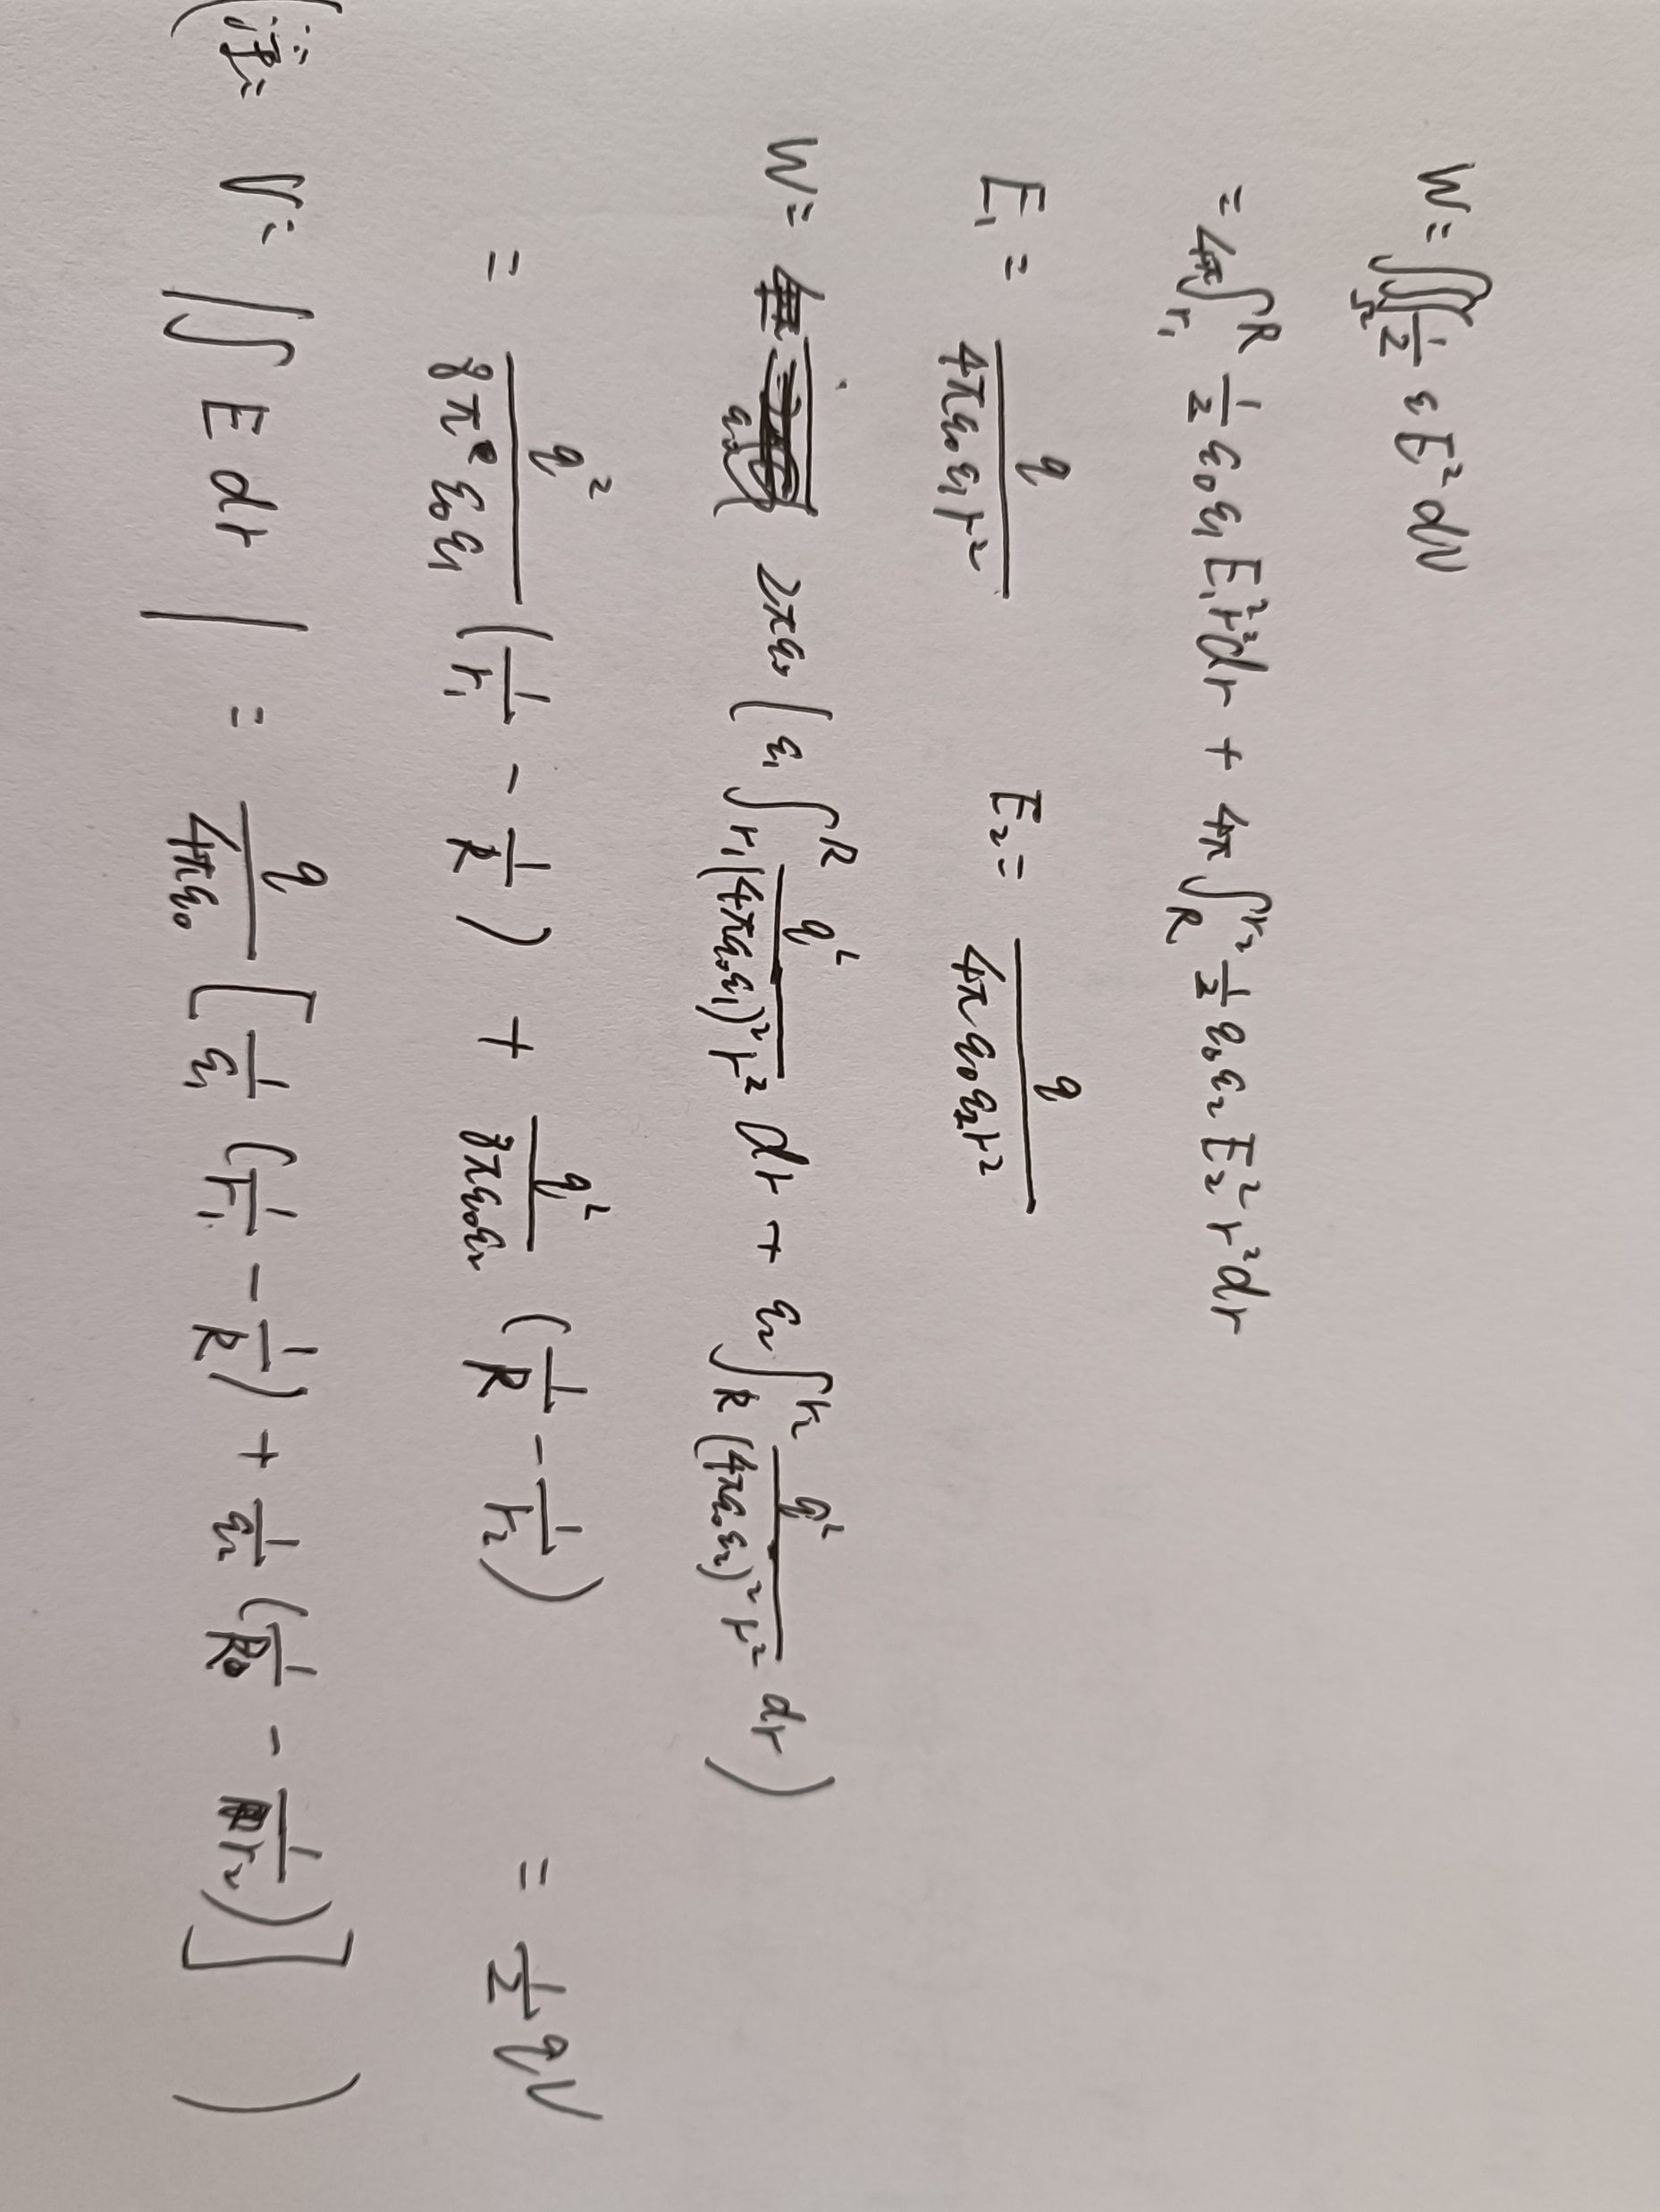 W = ∭_Ω 1/2 ε E² dV
= 4π ∫_{r₁}^{R} 1/2 ε₀ε₁ E₁² r² dr + 4π ∫_{R}^{r₂} 1/2 ε₀ε₂ E₂² r² dr
E₁ = q/(4πε₀ε₁r²) E₂ = q/(4πε₀ε₂r²)
W = 2πε₀ ( ε₁ ∫_{r₁}^{R} q²/((4πε₀ε₁)² r²) dr + ε₂ ∫_{R}^{r₂} q²/((4πε₀ε₂)² r²) dr )
= q²/(8πε₀ε₁) (1/r₁ - 1/R) + q²/(8πε₀ε₂) (1/R - 1/r₂) = 1/2 qV
(注: V = |∫ E dr| = q/(4πε₀) [ 1/ε₁ (1/r₁ - 1/R) + 1/ε₂ (1/R - 1/r₂) ] )